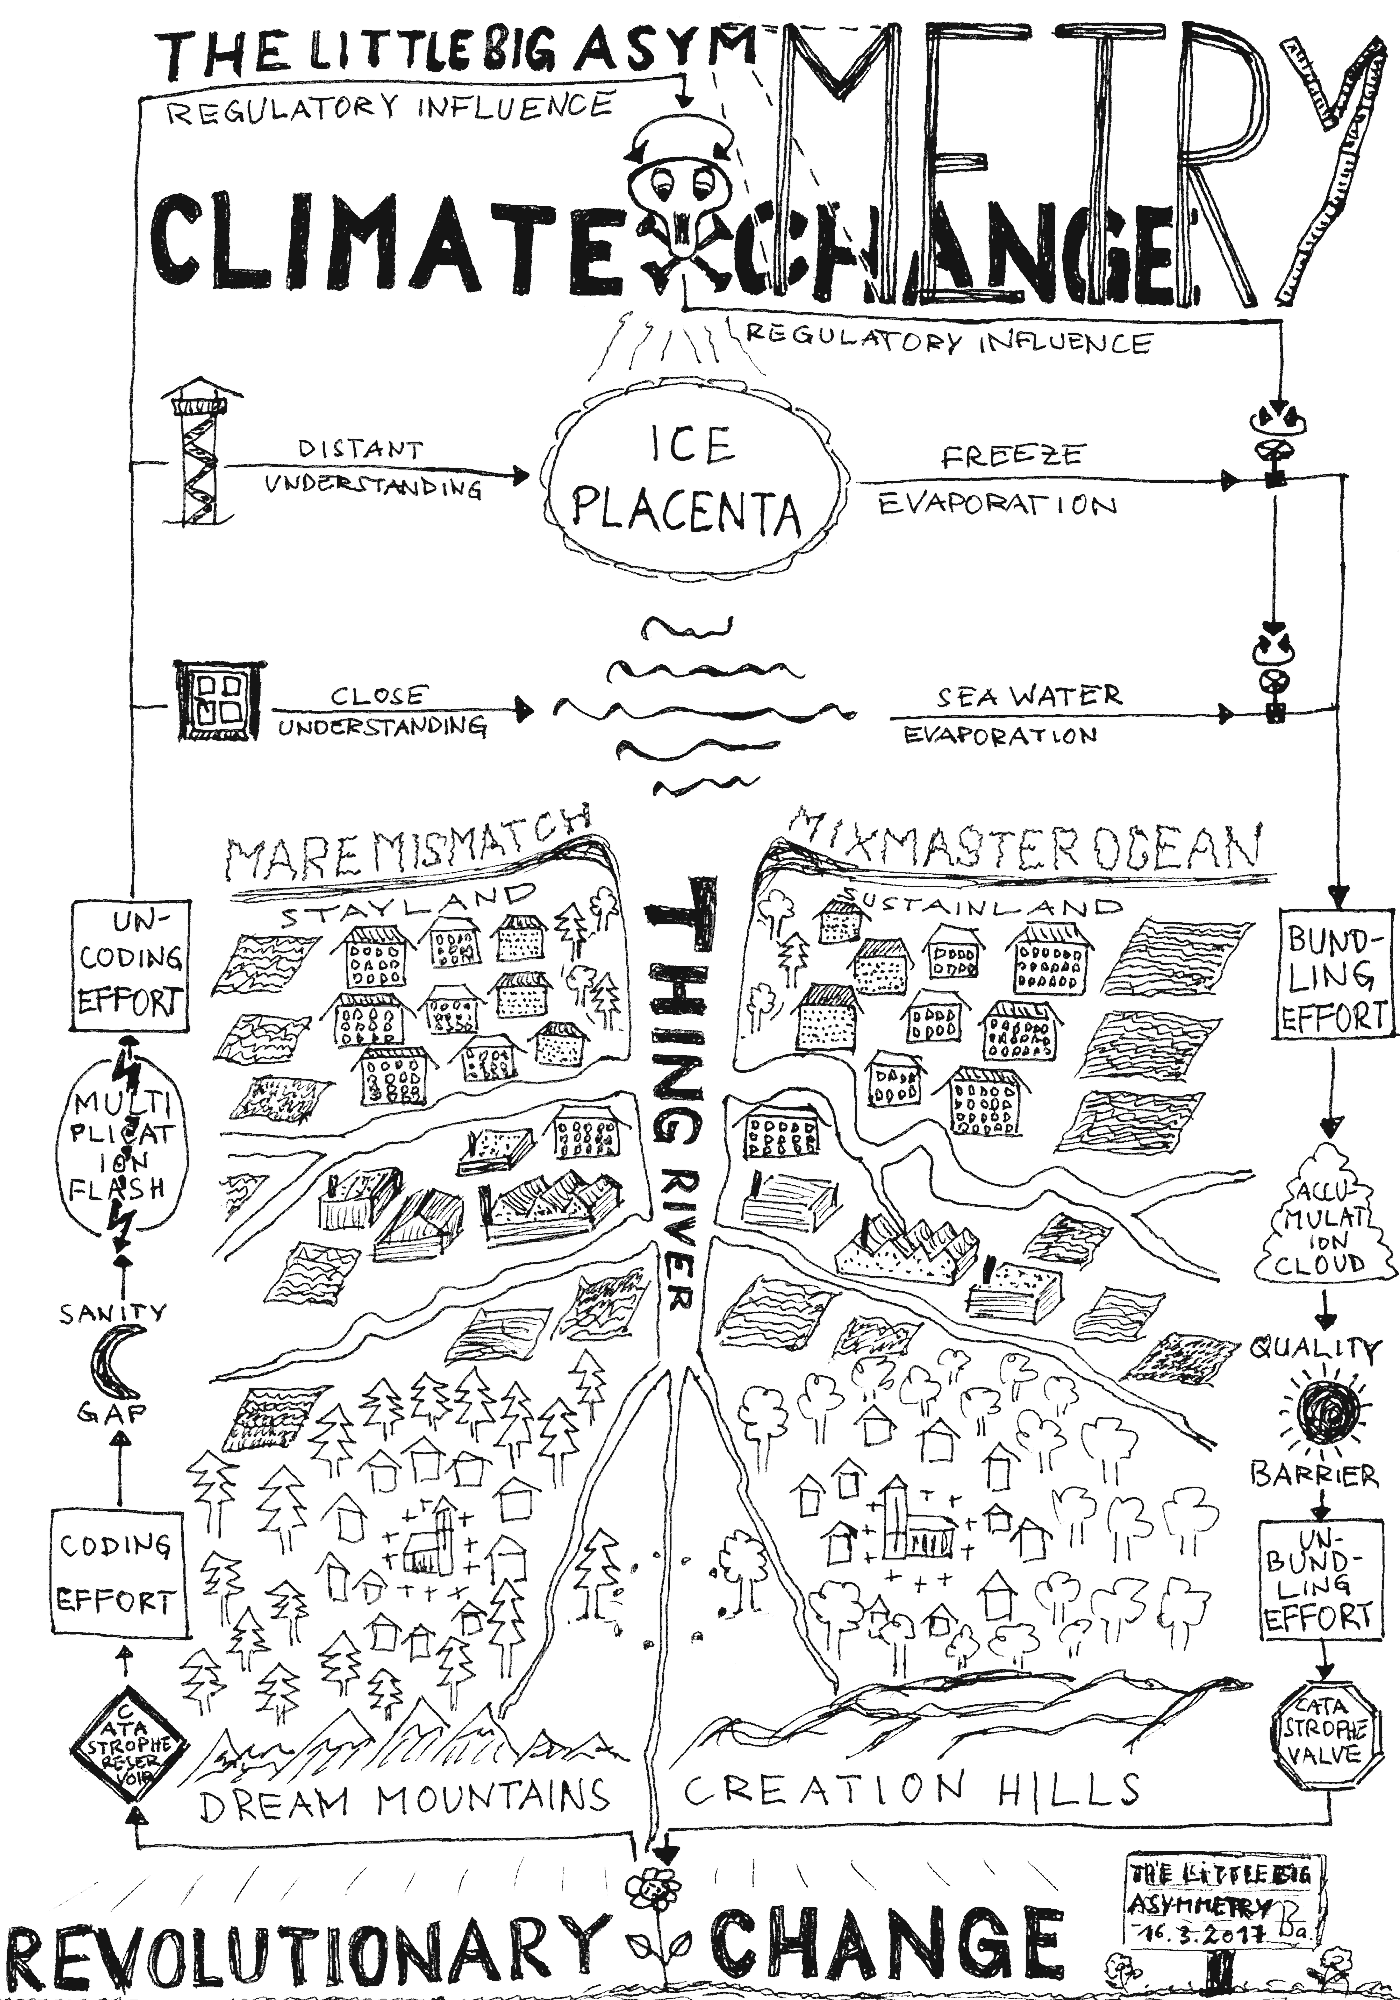 THE LITTLE BIG ASYMMETRY
REGULATORY INFLUENCE
CLIMATE CHANGE
REGULATORY INFLUENCE
DISTANT
UNDERSTANDING
ICE
PLACENTA
FREEZE
EVAPORATION
CLOSE
UNDERSTANDING
SEA WATER
EVAPORATION
MARE MISMATCH
MIXMASTER OCEAN
STAYLAND
SUSTAINLAND
THING RIVER
UN-
CODING
EFFORT
MULTI
PLICAT
ION
FLASH
SANITY
GAP
CODING
EFFORT
C
ATA
STROPHE
RESER
VOIR
BUND-
LING
EFFORT
ACCU-
MULAT
ION
CLOUD
QUALITY
BARRIER
UN-
BUND-
LING
EFFORT
CATA
STROPHE
VALVE
DREAM MOUNTAINS
CREATION HILLS
REVOLUTIONARY CHANGE
THE LITTLE BIG
ASYMMETRY
16.3.2017 Ba.